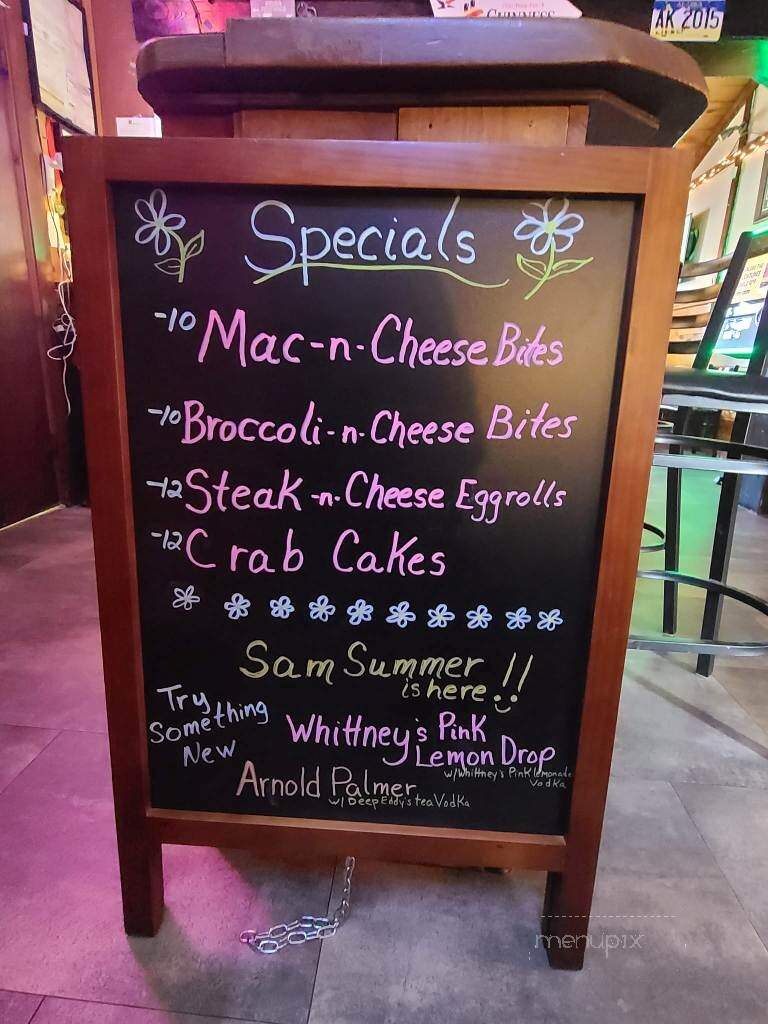 GUINNESS
AK 2015
Specials
-10 Mac-n-Cheese Bites
-10 Broccoli-n-Cheese Bites
-12 Steak-n-Cheese Eggrolls
-12 Crab Cakes
Sam Summer !!
is here
Try
Something
New
Whittney's Pink
Lemon Drop
w/Whittney's Pink lemonade
Vodka
Arnold Palmer
w/ Deep Eddy's tea Vodka
menupix